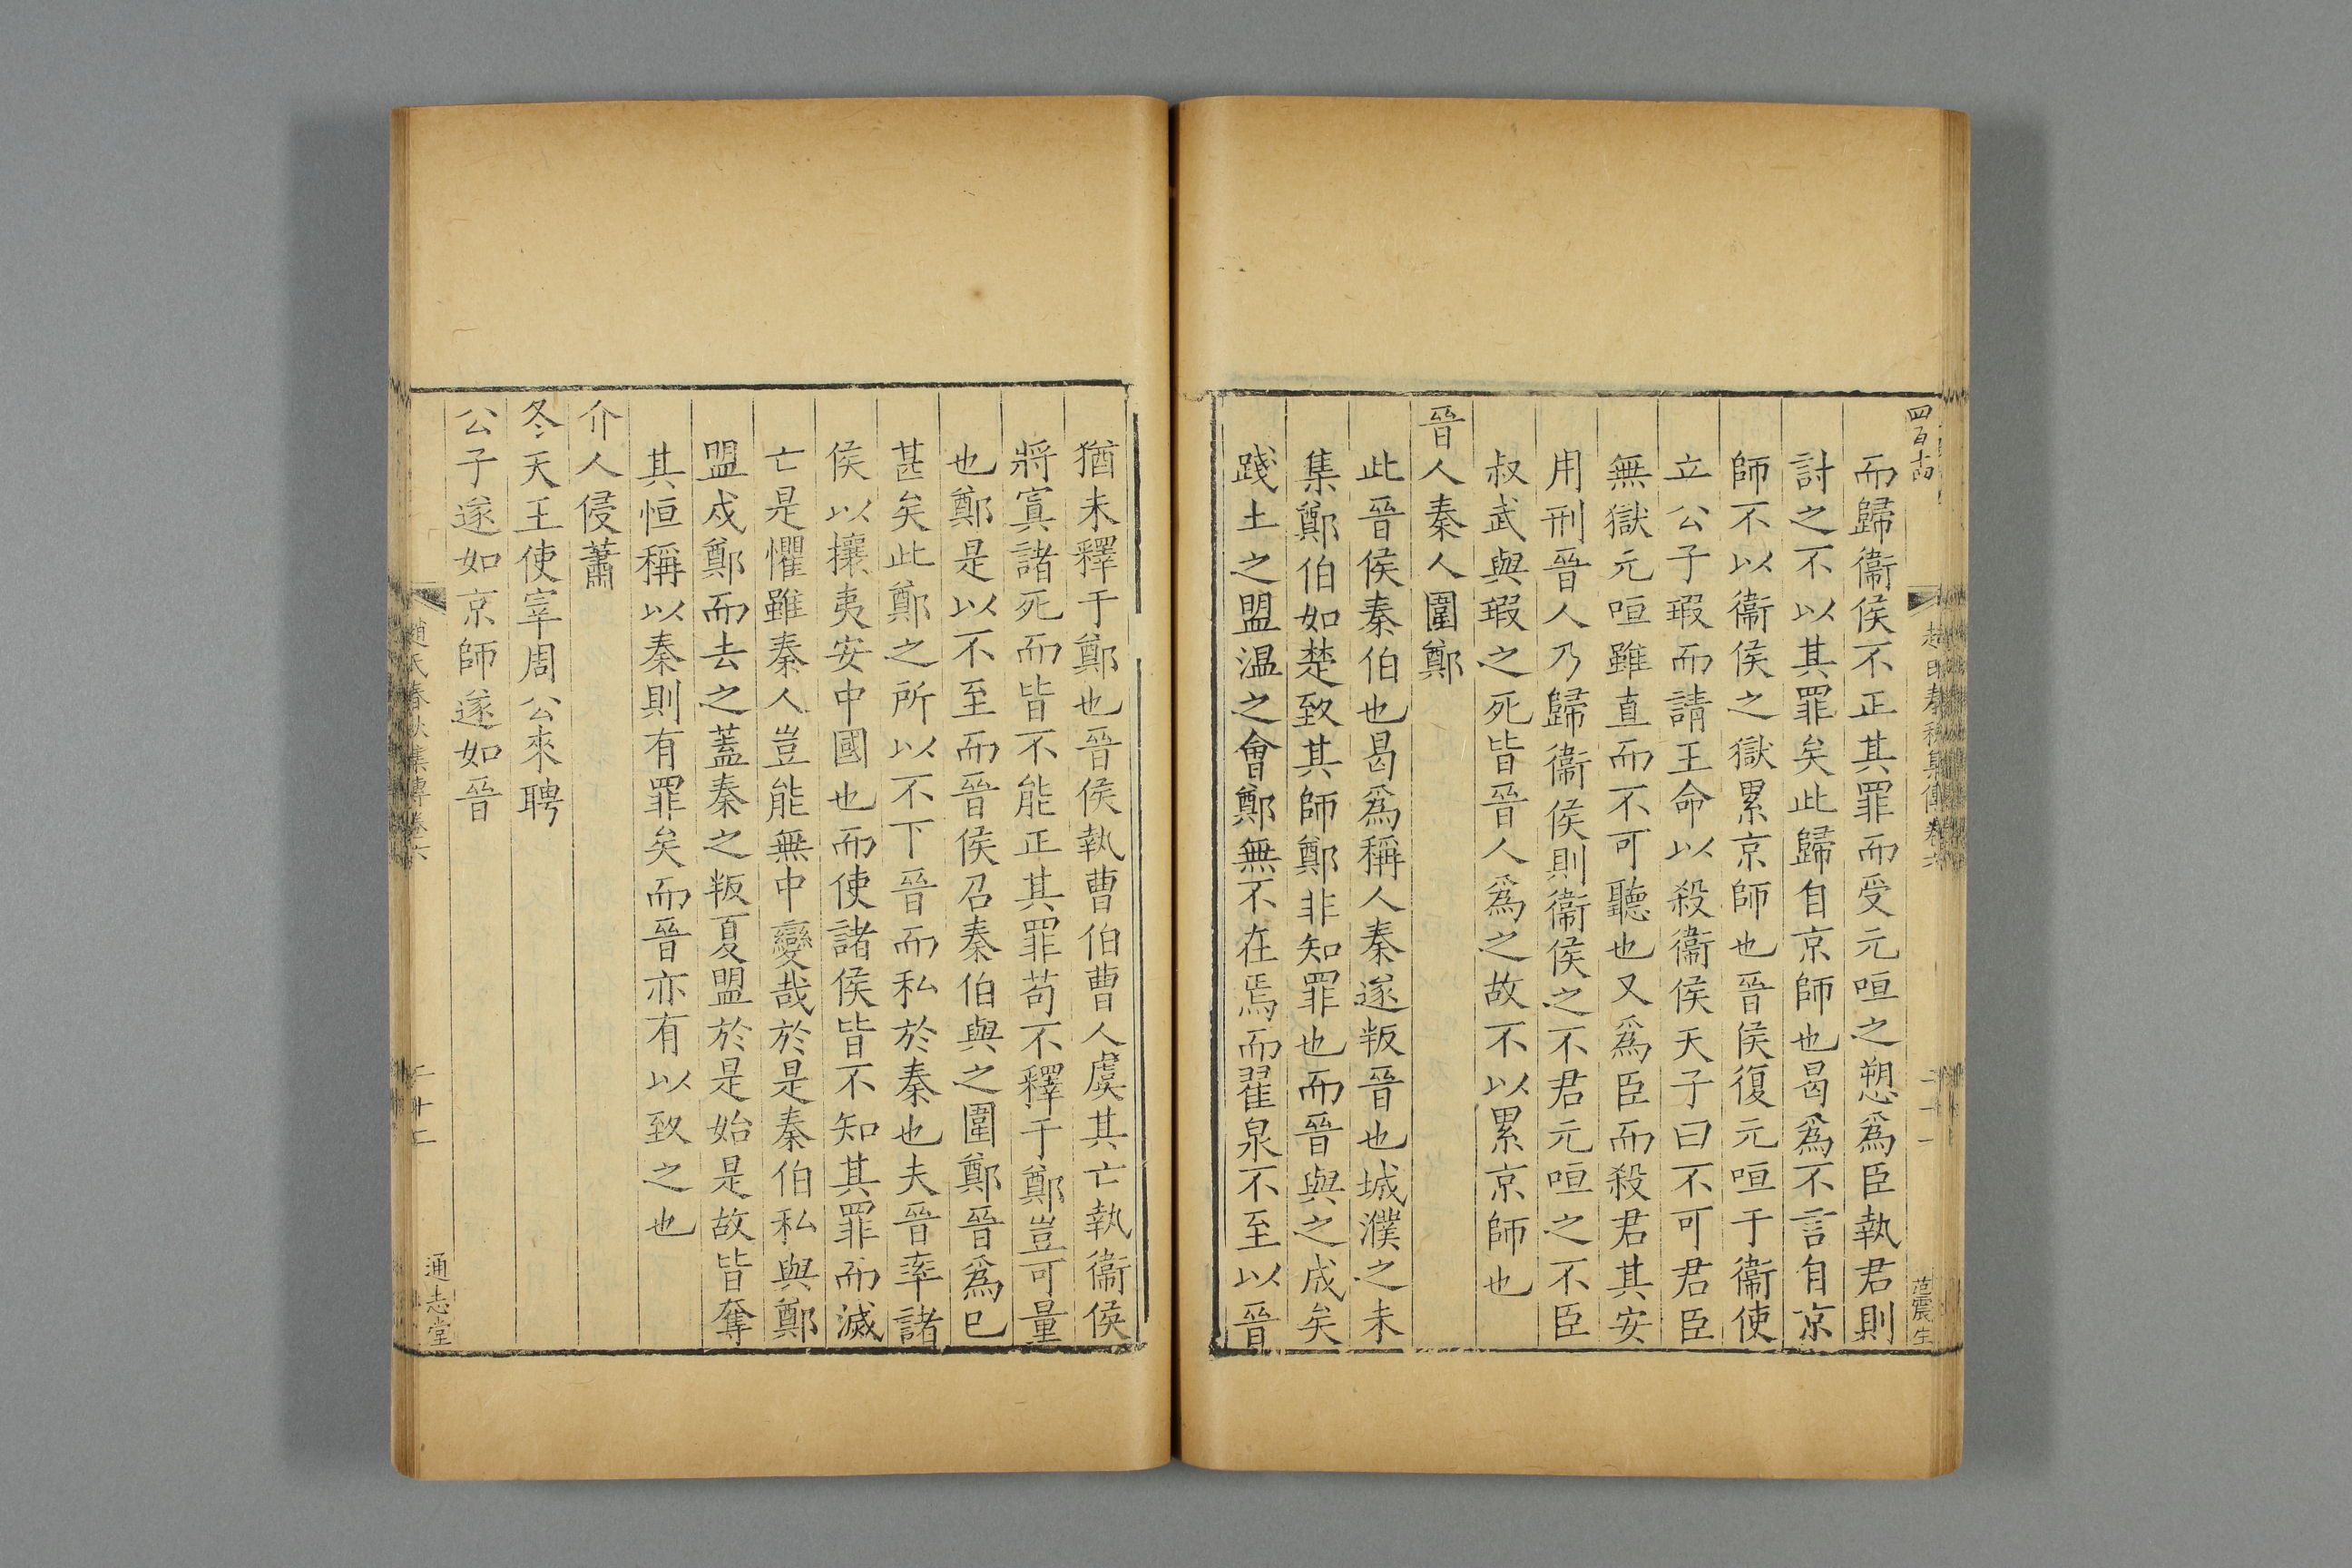 四百
而歸衞侯不正其罪而受元咺之愬爲臣執君則
討之不以其罪矣此歸自京師也曷爲不言自京
師不以衞侯之獄累京師也晉侯復元咺于衞使
立公子瑕而請王命以殺衞侯天子曰不可君臣
無獄元咺雖直而不可聽也又爲臣而殺君其安
用刑晉人乃歸衞侯則衞侯之不君元咺之不臣
叔武與瑕之死皆晉人爲之故不以累京師也
晉人秦人圍鄭
此晉侯秦伯也曷爲稱人秦遂叛晉也城濮之未
集鄭伯如楚致其師鄭非知罪也而晉與之成矣
踐土之盟溫之會鄭無不在焉而翟泉不至以晉
范震生
猶未釋于鄭也晉侯執曹伯曹人虞其亡執衞侯
將寘諸死而皆不能正其罪苟不釋于鄭豈可量
也鄭是以不至而晉侯召秦伯與之圍鄭晉爲已
甚矣此鄭之所以不下晉而私於秦也夫晉率諸
侯以攘夷安中國也而使諸侯皆不知其罪而滅
亡是懼雖秦人豈能無中變哉於是秦伯私與鄭
盟戍鄭而去之蓋秦之叛夏盟於是始是故皆奪
其恒稱以秦則有罪矣而晉亦有以致之也
介人侵蕭
冬天王使宰周公來聘
公子遂如京師遂如晉
趙氏春秋集傳卷六
二十二
通志堂